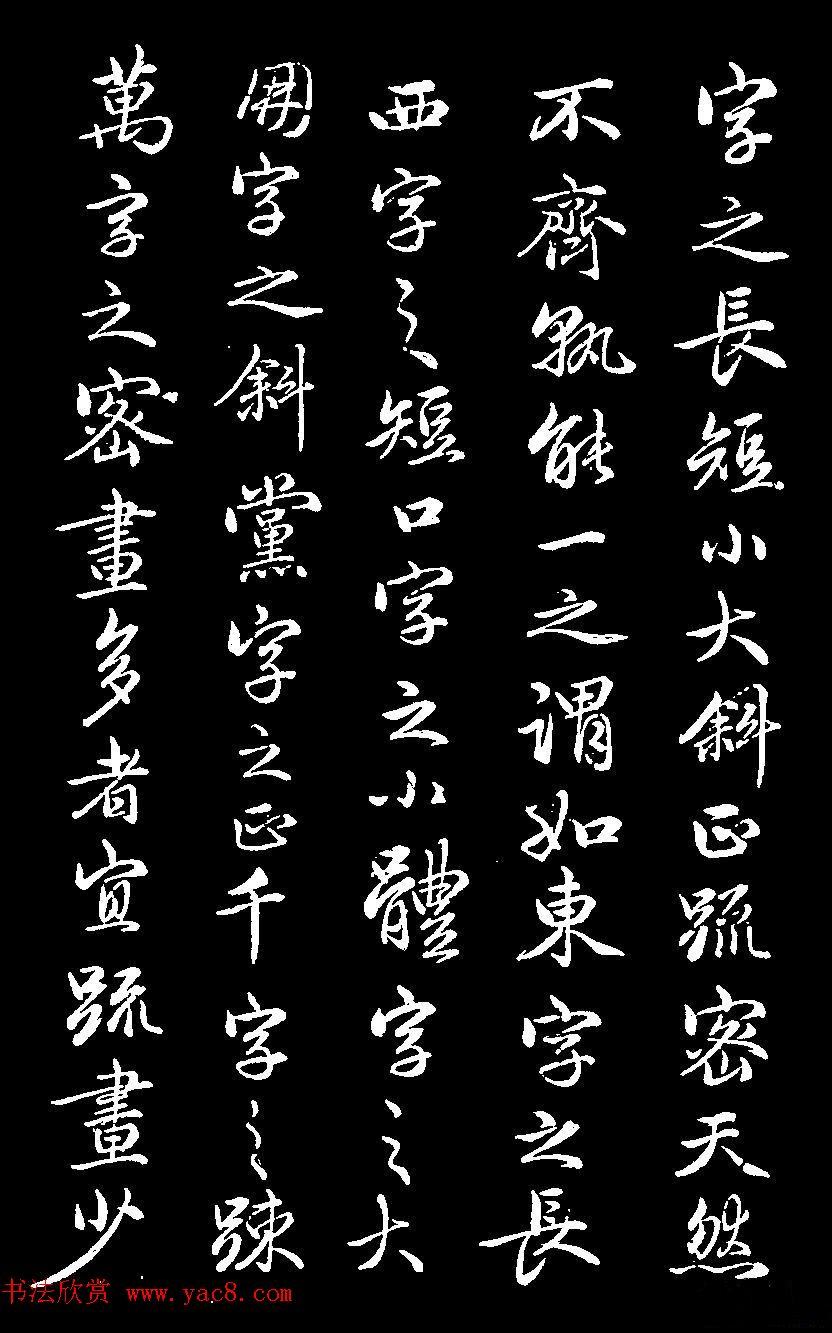 字之長短小大斜正疏密天然
不齊孰能一之謂如東字之長
西字之短口字之小體字之大
朋字之斜黨字之正千字之踈
萬字之密畫多者宜疏畫少
书法欣赏 www.yac8.com